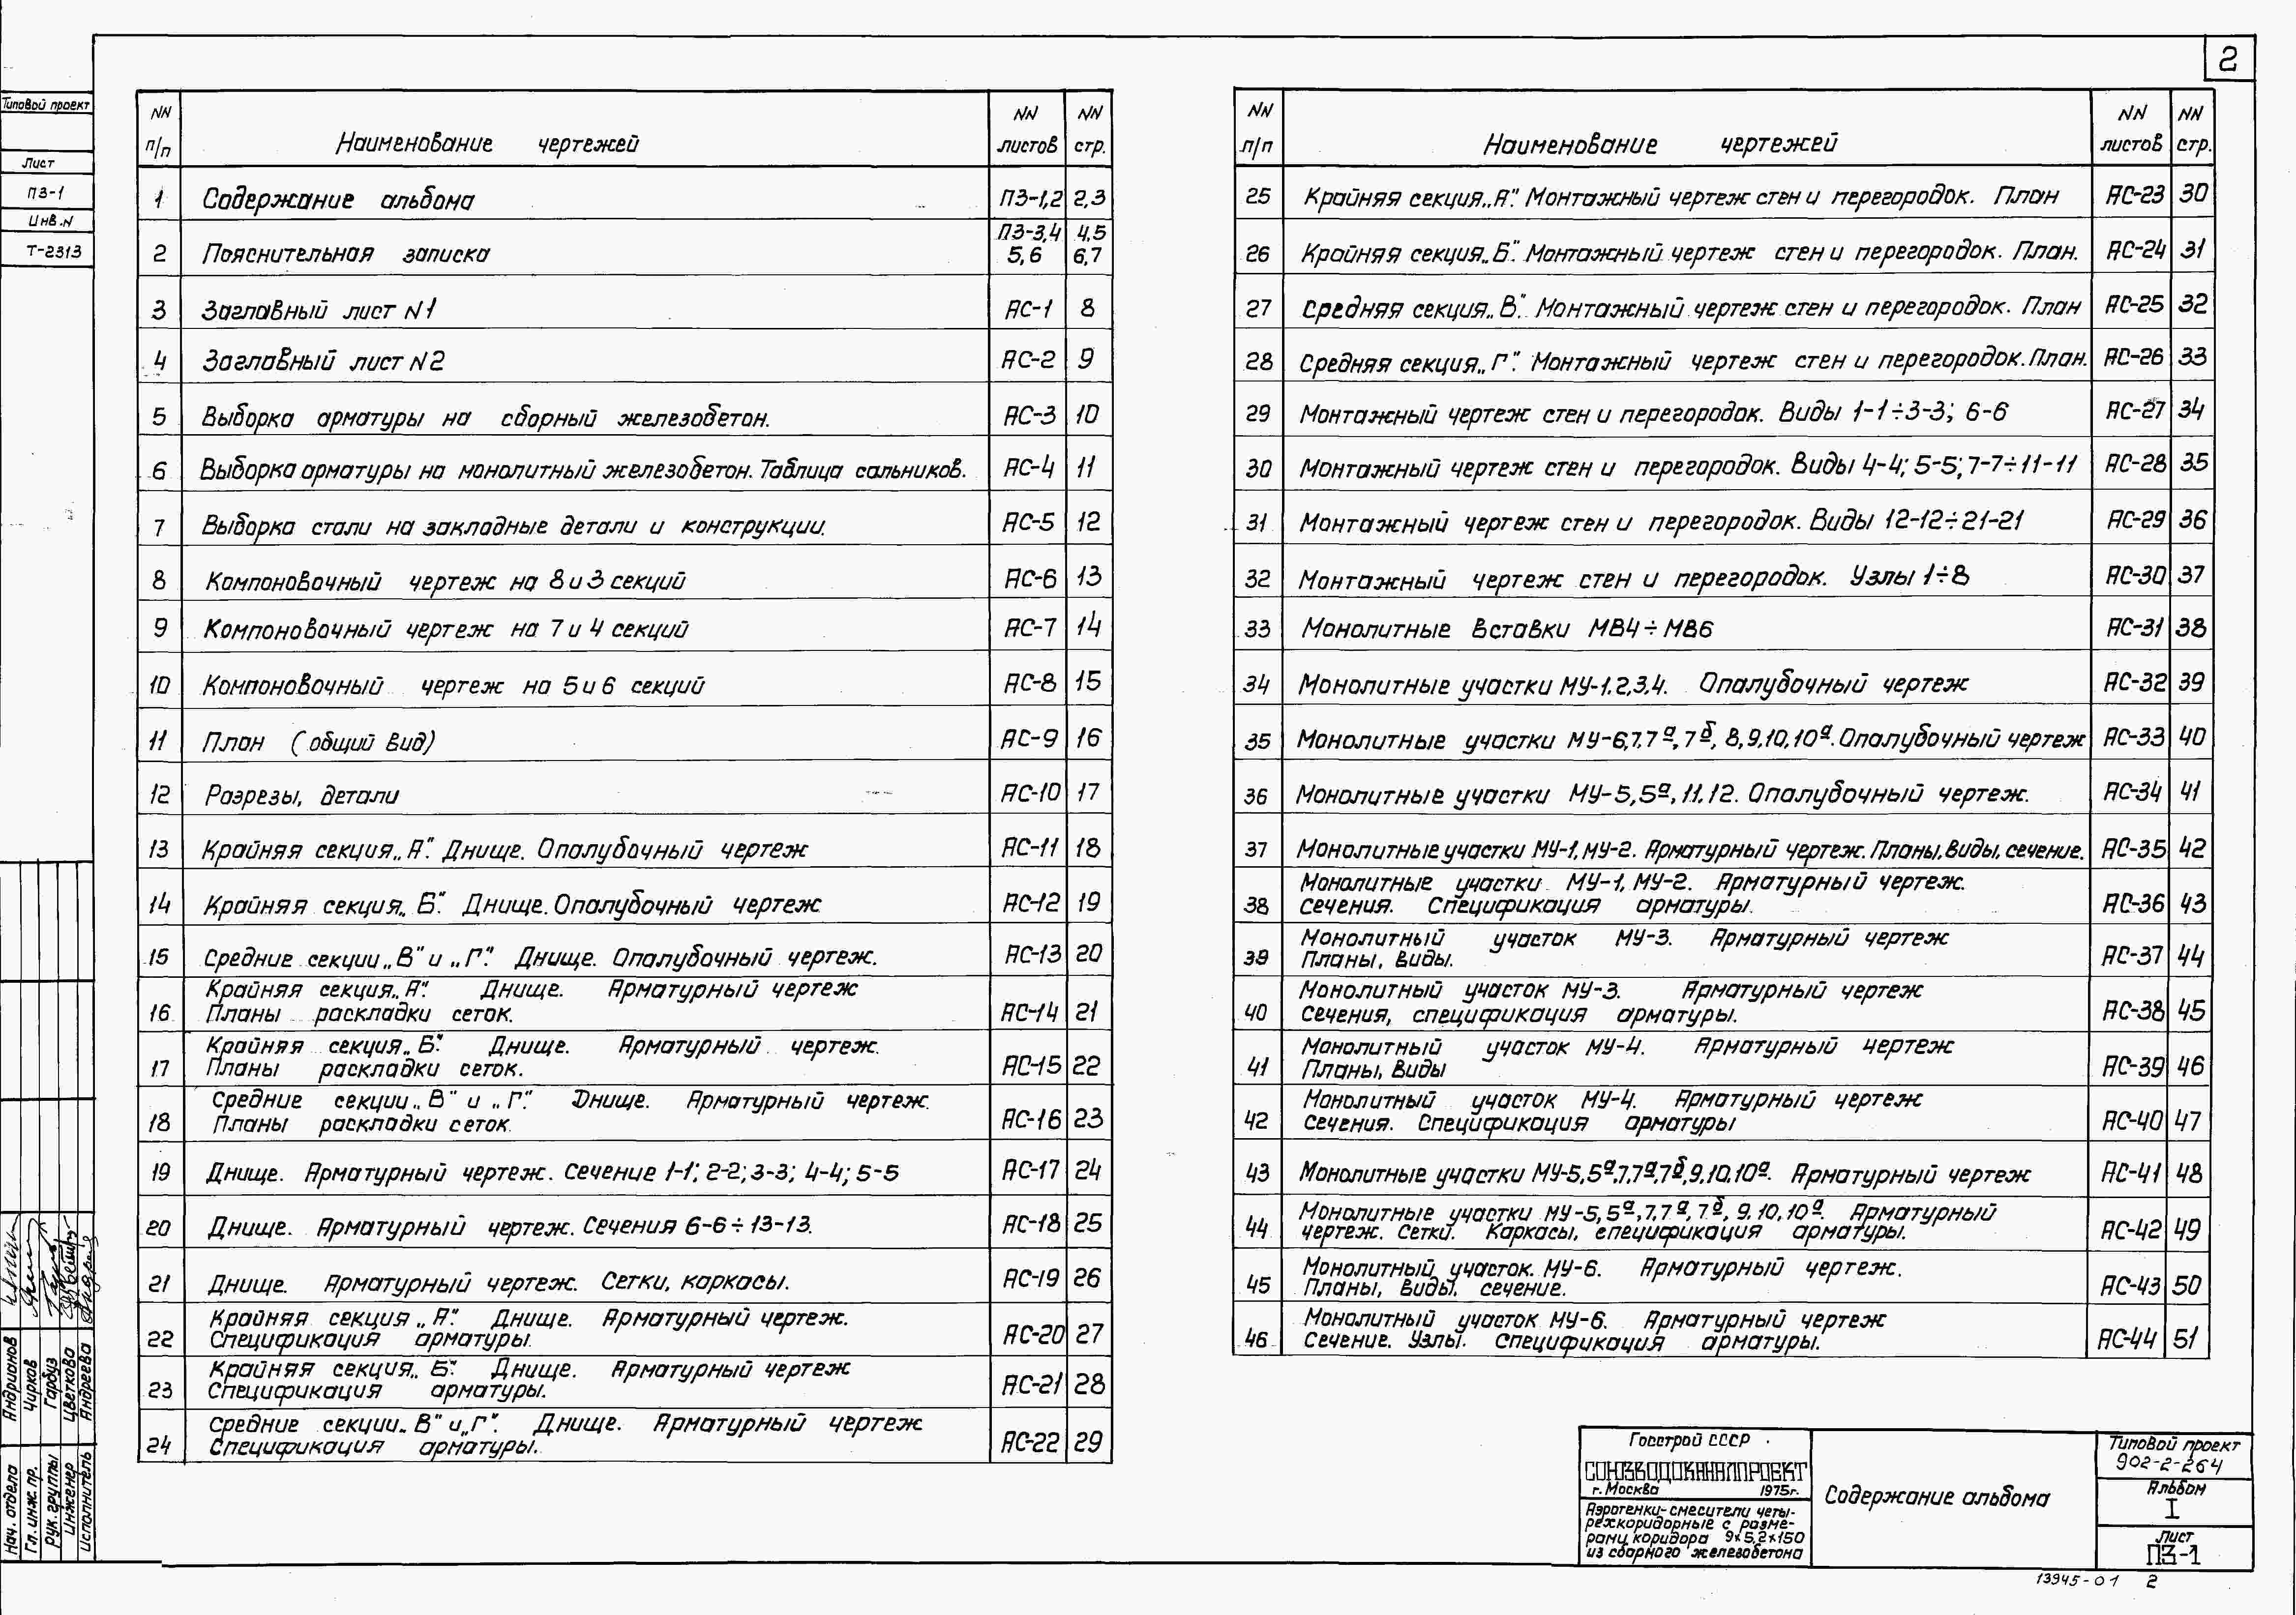 2
Типовой проект
Лист
ПЗ-1
Инв.N
Т-2313
NN п/п Наименование чертежей NN листов NN стр.
1 Содержание альбома ПЗ-1,2 2,3
2 Пояснительная записка ПЗ-3,4 5,6 4,5 6,7
3 Заглавный лист N1 АС-1 8
4 Заглавный лист N2 АС-2 9
5 Выборка арматуры на сборный железобетон. АС-3 10
6 Выборка арматуры на монолитный железобетон. Таблица сальников. АС-4 11
7 Выборка стали на закладные детали и конструкции. АС-5 12
8 Компоновочный чертеж на 8 и 3 секций АС-6 13
9 Компоновочный чертеж на 7 и 4 секций АС-7 14
10 Компоновочный чертеж на 5 и 6 секций АС-8 15
11 План (общий вид) АС-9 16
12 Разрезы, детали АС-10 17
13 Крайняя секция „А". Днище. Опалубочный чертеж АС-11 18
14 Крайняя секция „Б". Днище. Опалубочный чертеж АС-12 19
15 Средние секции „В" и „Г". Днище. Опалубочный чертеж. АС-13 20
16 Крайняя секция „А". Днище. Арматурный чертеж
Планы раскладки сеток. АС-14 21
17 Крайняя секция „Б". Днище. Арматурный чертеж.
Планы раскладки сеток. АС-15 22
18 Средние секции „В" и „Г". Днище. Арматурный чертеж.
Планы раскладки сеток. АС-16 23
19 Днище. Арматурный чертеж. Сечение 1-1; 2-2; 3-3; 4-4; 5-5 АС-17 24
20 Днище. Арматурный чертеж. Сечения 6-6÷13-13. АС-18 25
21 Днище. Арматурный чертеж. Сетки, каркасы. АС-19 26
22 Крайняя секция „А". Днище. Арматурный чертеж.
Спецификация арматуры. АС-20 27
23 Крайняя секция „Б". Днище. Арматурный чертеж
Спецификация арматуры. АС-21 28
24 Средние секции „В" и „Г". Днище. Арматурный чертеж
Спецификация арматуры. АС-22 29
NN п/п Наименование чертежей NN листов NN стр.
25 Крайняя секция „А". Монтажный чертеж стен и перегородок. План АС-23 30
26 Крайняя секция „Б". Монтажный чертеж стен и перегородок. План. АС-24 31
27 Средняя секция „В". Монтажный чертеж стен и перегородок. План АС-25 32
28 Средняя секция „Г". Монтажный чертеж стен и перегородок. План. АС-26 33
29 Монтажный чертеж стен и перегородок. Виды 1-1÷3-3; 6-6 АС-27 34
30 Монтажный чертеж стен и перегородок. Виды 4-4; 5-5; 7-7÷11-11 АС-28 35
31 Монтажный чертеж стен и перегородок. Виды 12-12÷21-21 АС-29 36
32 Монтажный чертеж стен и перегородок. Узлы 1÷8 АС-30 37
33 Монолитные вставки МВ4÷МВ6 АС-31 38
34 Монолитные участки МУ-1,2,3,4. Опалубочный чертеж АС-32 39
35 Монолитные участки МУ-6,7,7а, 7б, 8,9,10,10а. Опалубочный чертеж АС-33 40
36 Монолитные участки МУ-5,5а, 11,12. Опалубочный чертеж. АС-34 41
37 Монолитные участки МУ-1, МУ-2. Арматурный чертеж. Планы, виды, сечение. АС-35 42
38 Монолитные участки МУ-1, МУ-2. Арматурный чертеж.
Сечения. Спецификация арматуры. АС-36 43
39 Монолитный участок МУ-3. Арматурный чертеж
Планы, виды. АС-37 44
40 Монолитный участок МУ-3. Арматурный чертеж
Сечения, спецификация арматуры. АС-38 45
41 Монолитный участок МУ-4. Арматурный чертеж
Планы, виды АС-39 46
42 Монолитный участок МУ-4. Арматурный чертеж
Сечения. Спецификация арматуры АС-40 47
43 Монолитные участки МУ-5,5а,7,7а,7б,9,10,10а. Арматурный чертеж АС-41 48
44 Монолитные участки МУ-5,5а,7,7а, 7б, 9,10,10а. Арматурный
чертеж. Сетки. Каркасы, спецификация арматуры. АС-42 49
45 Монолитный участок. МУ-6. Арматурный чертеж.
Планы, виды, сечение. АС-43 50
46 Монолитный участок МУ-6. Арматурный чертеж
Сечение. Узлы. Спецификация арматуры. АС-44 51
Нач. отдела Андрианов
Гл. инж. пр. Чирков
Рук. группы Гарбуз
Инженер Цветкова
Исполнитель Андреева
Госстрой СССР
СОЮЗВОДОКАНАЛПРОЕКТ
г. Москва 1975г.
Аэротенки-смесители четы-
рехкоридорные с разме-
рами коридора 9×5,2×150
из сборного железобетона
Содержание альбома
Типовой проект
902-2-264
Альбом
I
Лист
ПЗ-1
13945-01 2